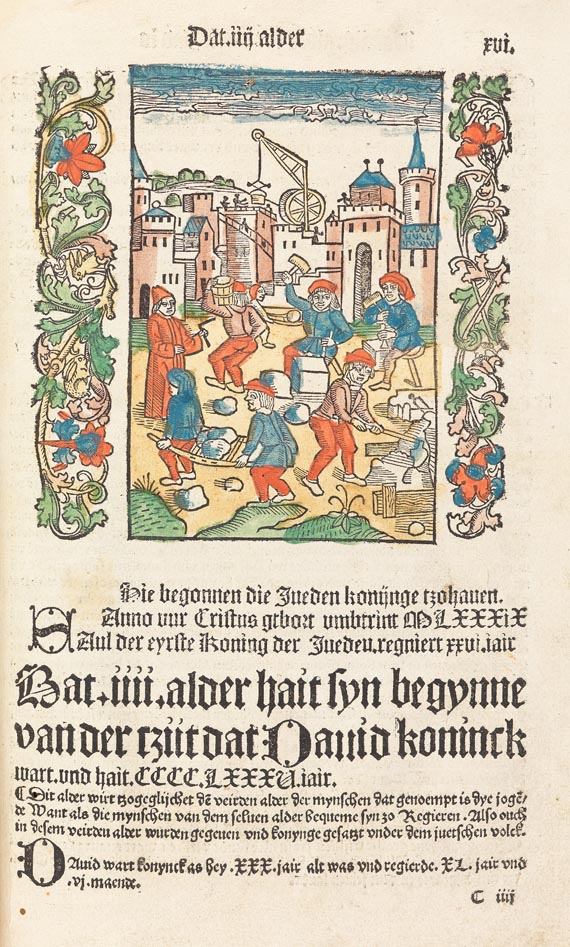 Dat .iiij. alder
xvi.
Hie begonnen die Jueden konijnge tzohauen.
Anno vur Cristus gebort vmbtrint MLXXXIX
SAul der eyrste Koning der Jueden.regniert xxvi.iair
Dat.iiii.alder hait syn begynne
van der tzijt dat Dauid koninck
wart.vnd hait.CCCC.LXXXV.iair.
¶ Dit alder wirt tzogeglijchet dē veirden alder der mynschen dat genoempt is dye jogē/
de Want als die mynschen van dem seluen alder bequeme syn zo Regieren. Also ouch
in desem veirden alder wurden gegeuen vnd konynge gesatzt vnder dem juetschen volck.
DAuid wart konynck as hey .XXX. jair alt was vnd regierde. XL. jair vnd
.vj. maende.
C iiij